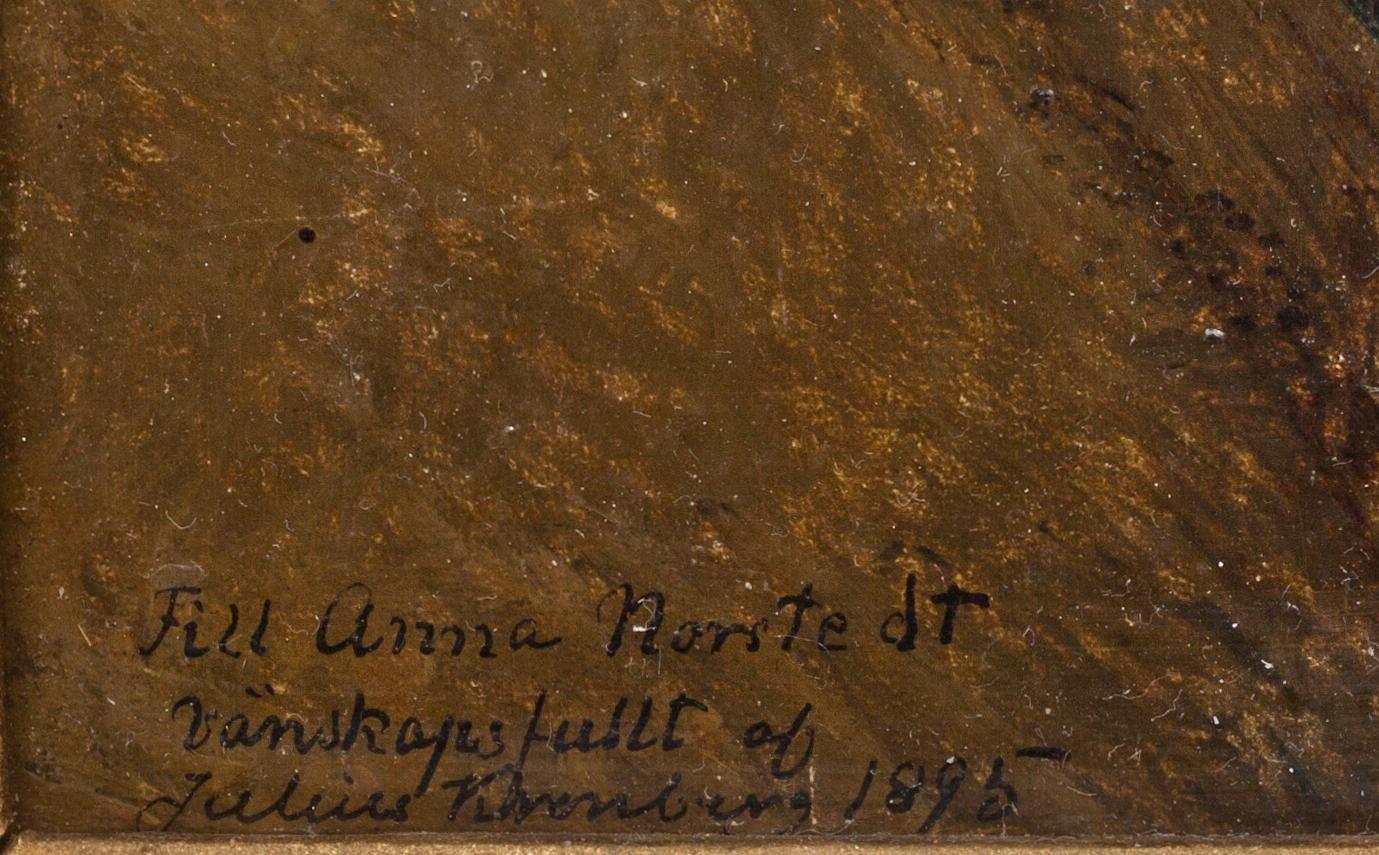 Till Anna Norstedt
Vänskapsfullt af
Julius Kronberg 1895